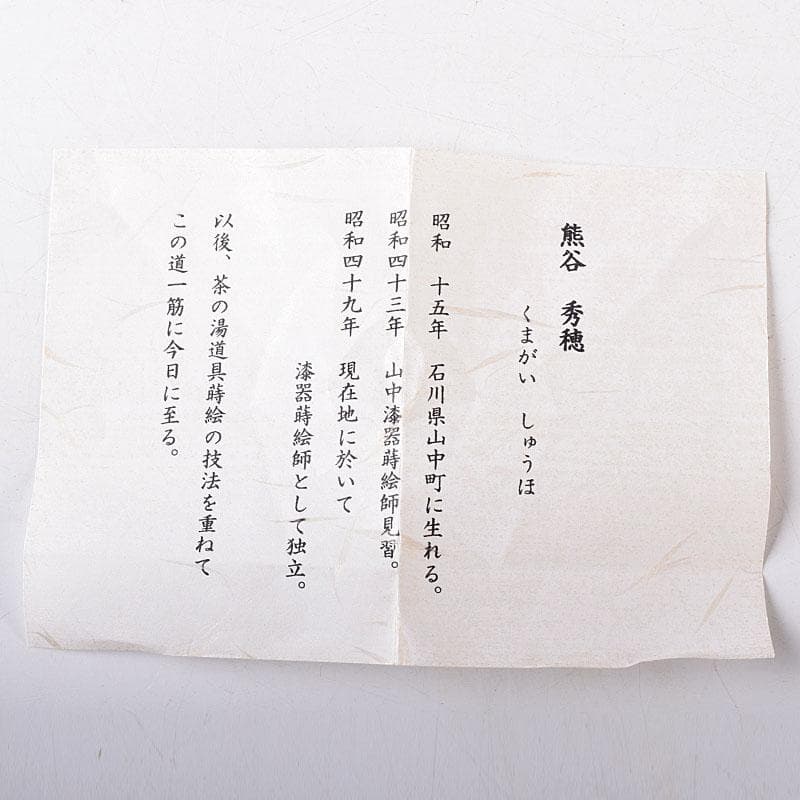 熊谷 秀穂
くまがい しゅうほ
昭和 十五年 石川県山中町に生れる。
昭和四十三年 山中漆器蒔絵師見習。
昭和四十九年 現在地に於いて
漆器蒔絵師として独立。
以後、茶の湯道具蒔絵の技法を重ねて
この道一筋に今日に至る。